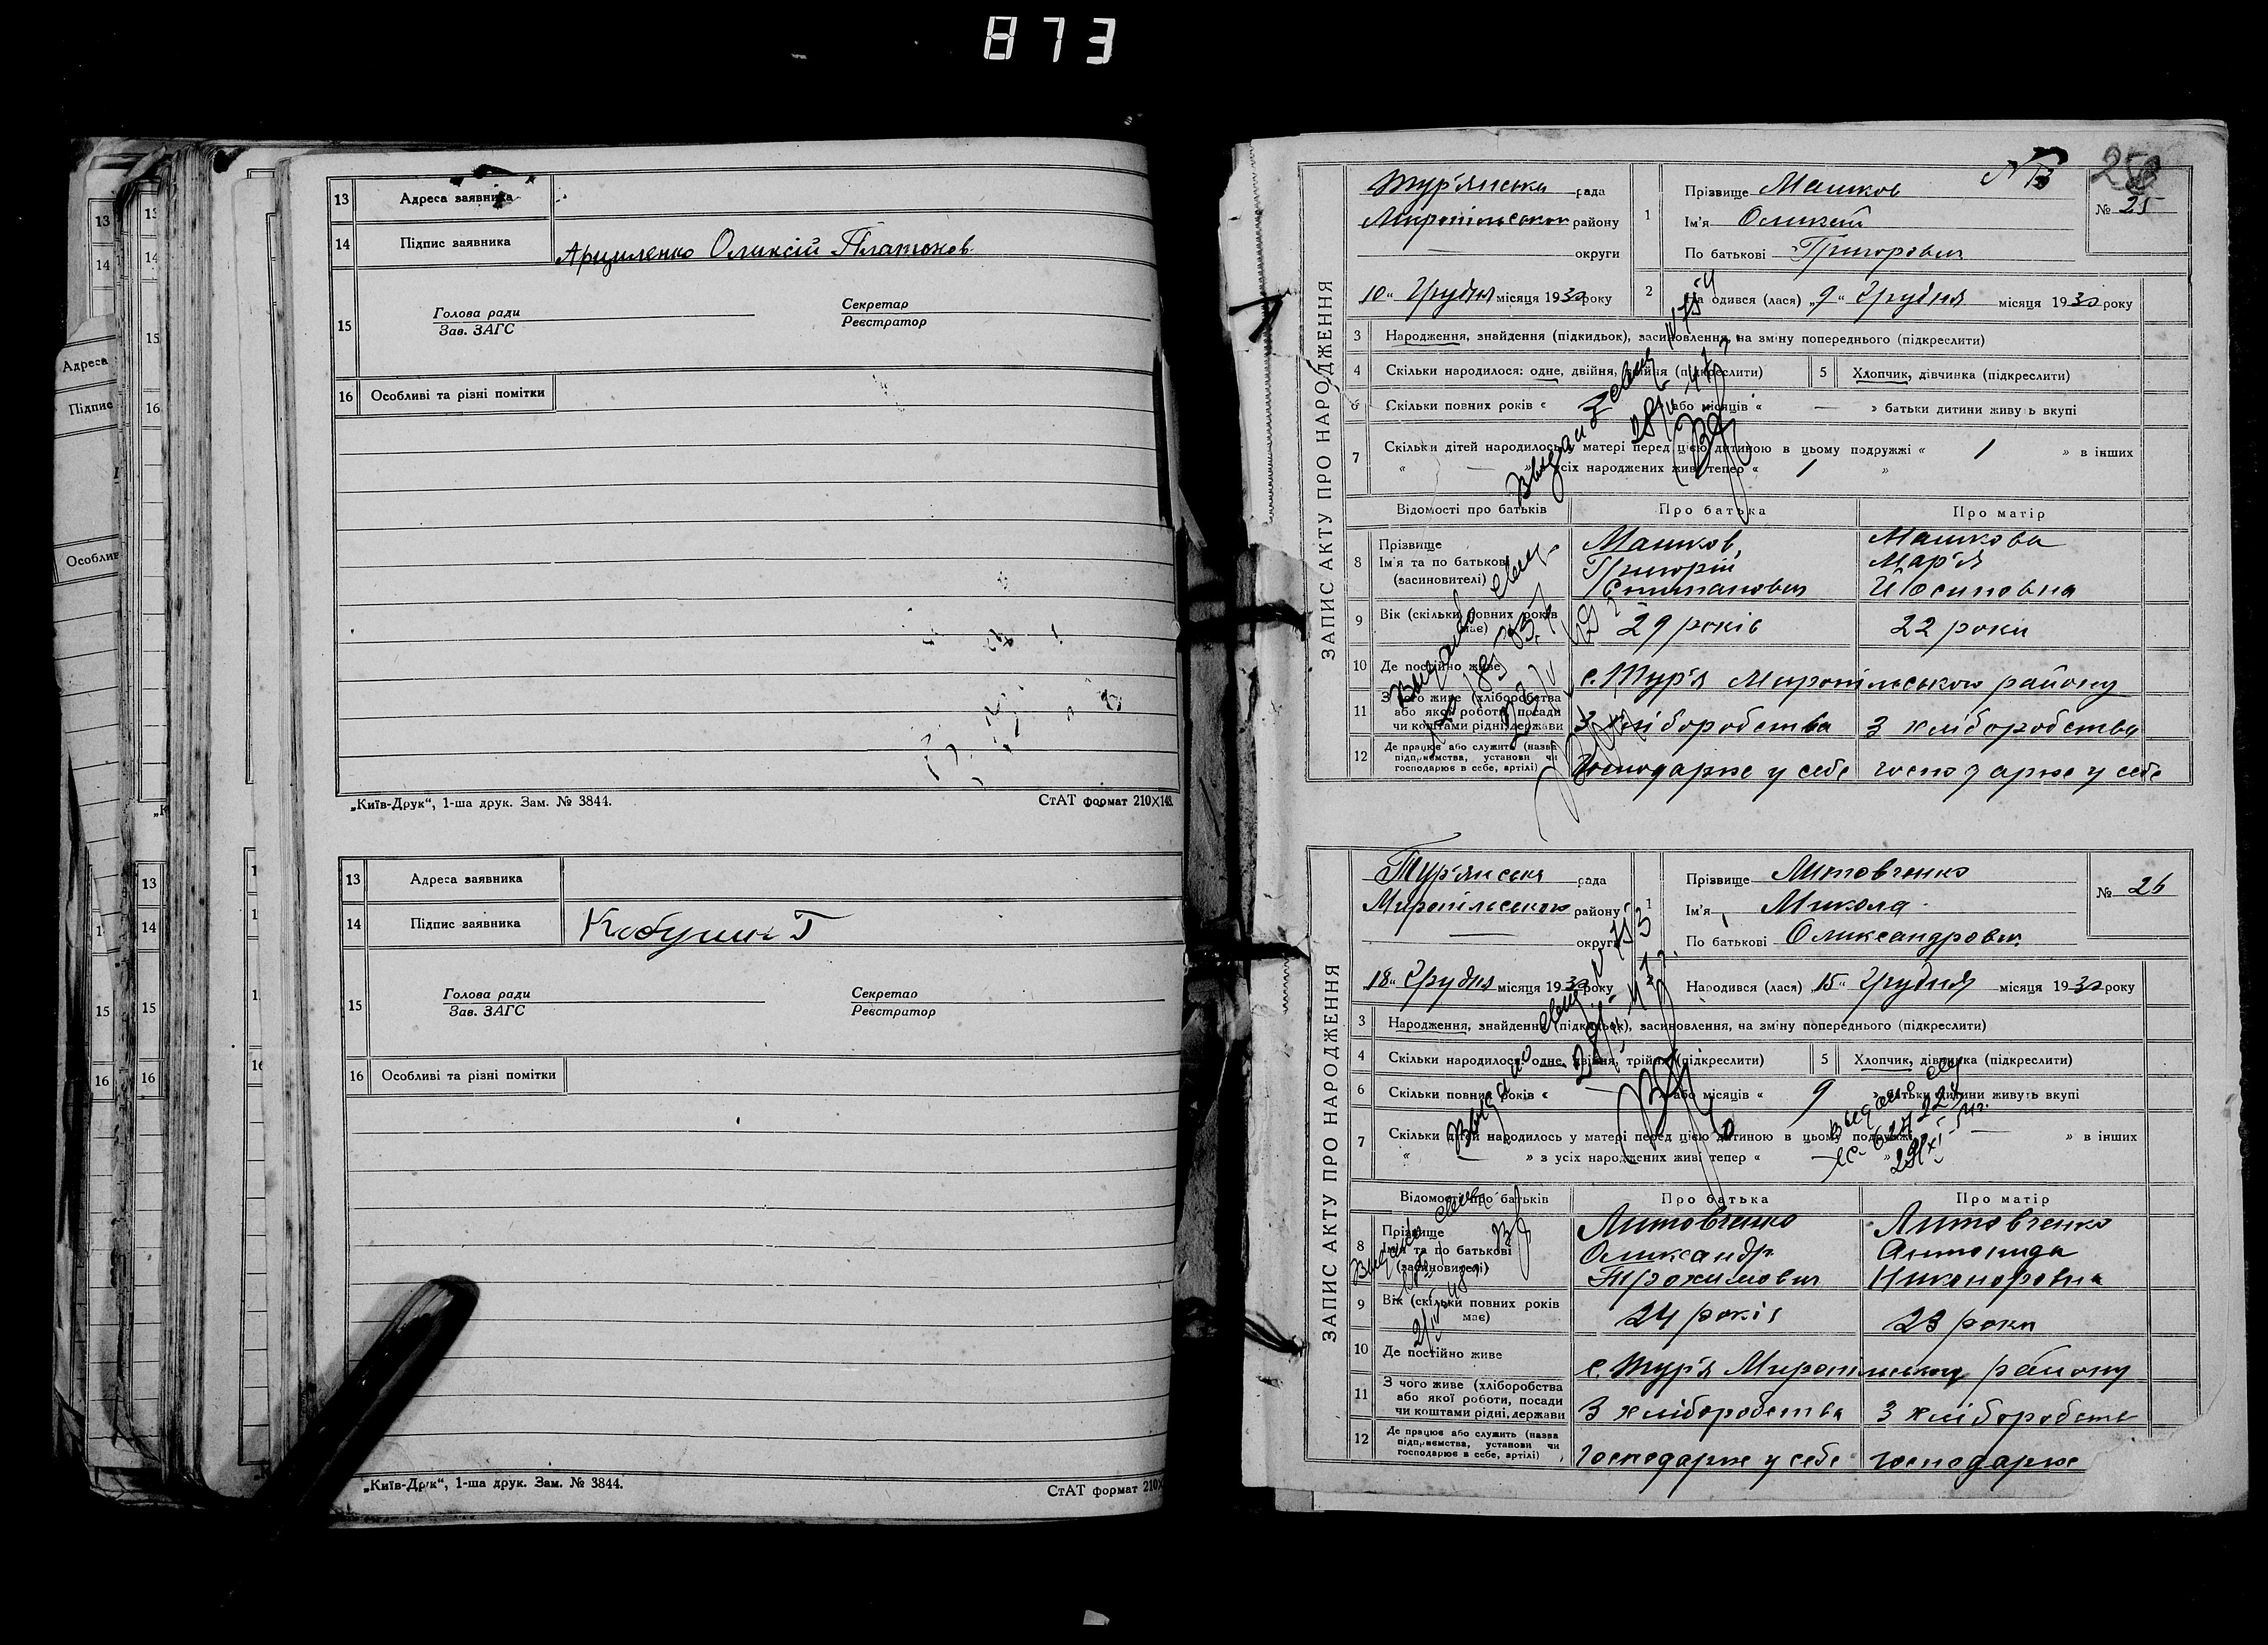 873
13 Адреса заявника
14 Підпис заявника Арциленко Оликсій Платонов
15 Голова ради Секретар
Зав. ЗАГС Реєстратор
16 Особливі та різні помітки
„Київ-Друк“, 1-ша друк. Зам. № 3844. СтАТ формат 210×148.
13 Адреса заявника
14 Підпис заявника
15 Голова ради Секретар
Зав. ЗАГС Реєстратор
16 Особливі та різні помітки
„Київ-Друк“, 1-ша друк. Зам. № 3844. СтАТ формат 210×
ЗАПИС АКТУ ПРО НАРОДЖЕННЯ
Тур'янська рада
Миропільського району
округи
„10“ Грудня місяця 1930 року
1 Прізвище Машков
Ім'я Оликсій
По батькові Григорович
№ 25
2 Народився (лася) „9“ Грудня місяця 1930 року
3 Народження, знайдення (підкидьок), засиновлення, на зміну попереднього (підкреслити)
4 Скільки народилося: одне, двійня, трійня (підкреслити) 5 Хлопчик, дівчинка (підкреслити)
6 Скільки повних років « » або місяців « — » батьки дитини живуть вкупі
7 Скільки дітей народилось у матері перед цією дитиною в цьому подружжі « 1 » в інших
« — » з усіх народжених живі тепер « 1 »
Відомості про батьків Про батька Про матір
8 Прізвище Машков Машкова
Ім'я та по батькові Григорій Мар'я
(засиновителі) Стипанович Йосиповна
9 Вік (скільки повних років має) 29 років 22 роки
10 Де постійно живе с. Тур'я Миропільського району
11 З чого живе (хліборобства
або якої роботи, посади
чи коштами рідні, держави З хліборобства З хліборобства
12 Де працює або служить (назва
підприємства, установи чи
господарює в себе, артілі) Господарює у себе господарює у себе
ЗАПИС АКТУ ПРО НАРОДЖЕННЯ
Тур'янська рада
Миропільського району
округи
„18“ Грудня місяця 1930 року
1 Прізвище Литовченко
Ім'я Микола
По батькові Олександрович
№ 26
Народився (лася) „15“ Грудня місяця 1930 року
3 Народження, знайдення (підкидьок), засиновлення, на зміну попереднього (підкреслити)
4 Скільки народилося: одне, двійня, трійня (підкреслити) 5 Хлопчик, дівчинка (підкреслити)
6 Скільки повних років « — » або місяців « 9 » батьки дитини живуть вкупі
7 Скільки дітей народилось у матері перед цією дитиною в цьому подружжі « » в інших
« — » з усіх народжених живі тепер « — »
Відомості про батьків Про батька Про матір
8 Прізвище Литовченко Литовченко
Ім'я та по батькові Олександр Антонида
(засиновителі) Трохимович Никоноровна
9 Вік (скільки повних років має) 24 років 23 роки
10 Де постійно живе с. Тур'я Миропільського району
11 З чого живе (хліборобства
або якої роботи, посади
чи коштами рідні, держави З хліборобства З хліборобств
12 Де працює або служить (назва
підприємства, установи чи
господарює в себе, артілі) Господарює у себе господарює